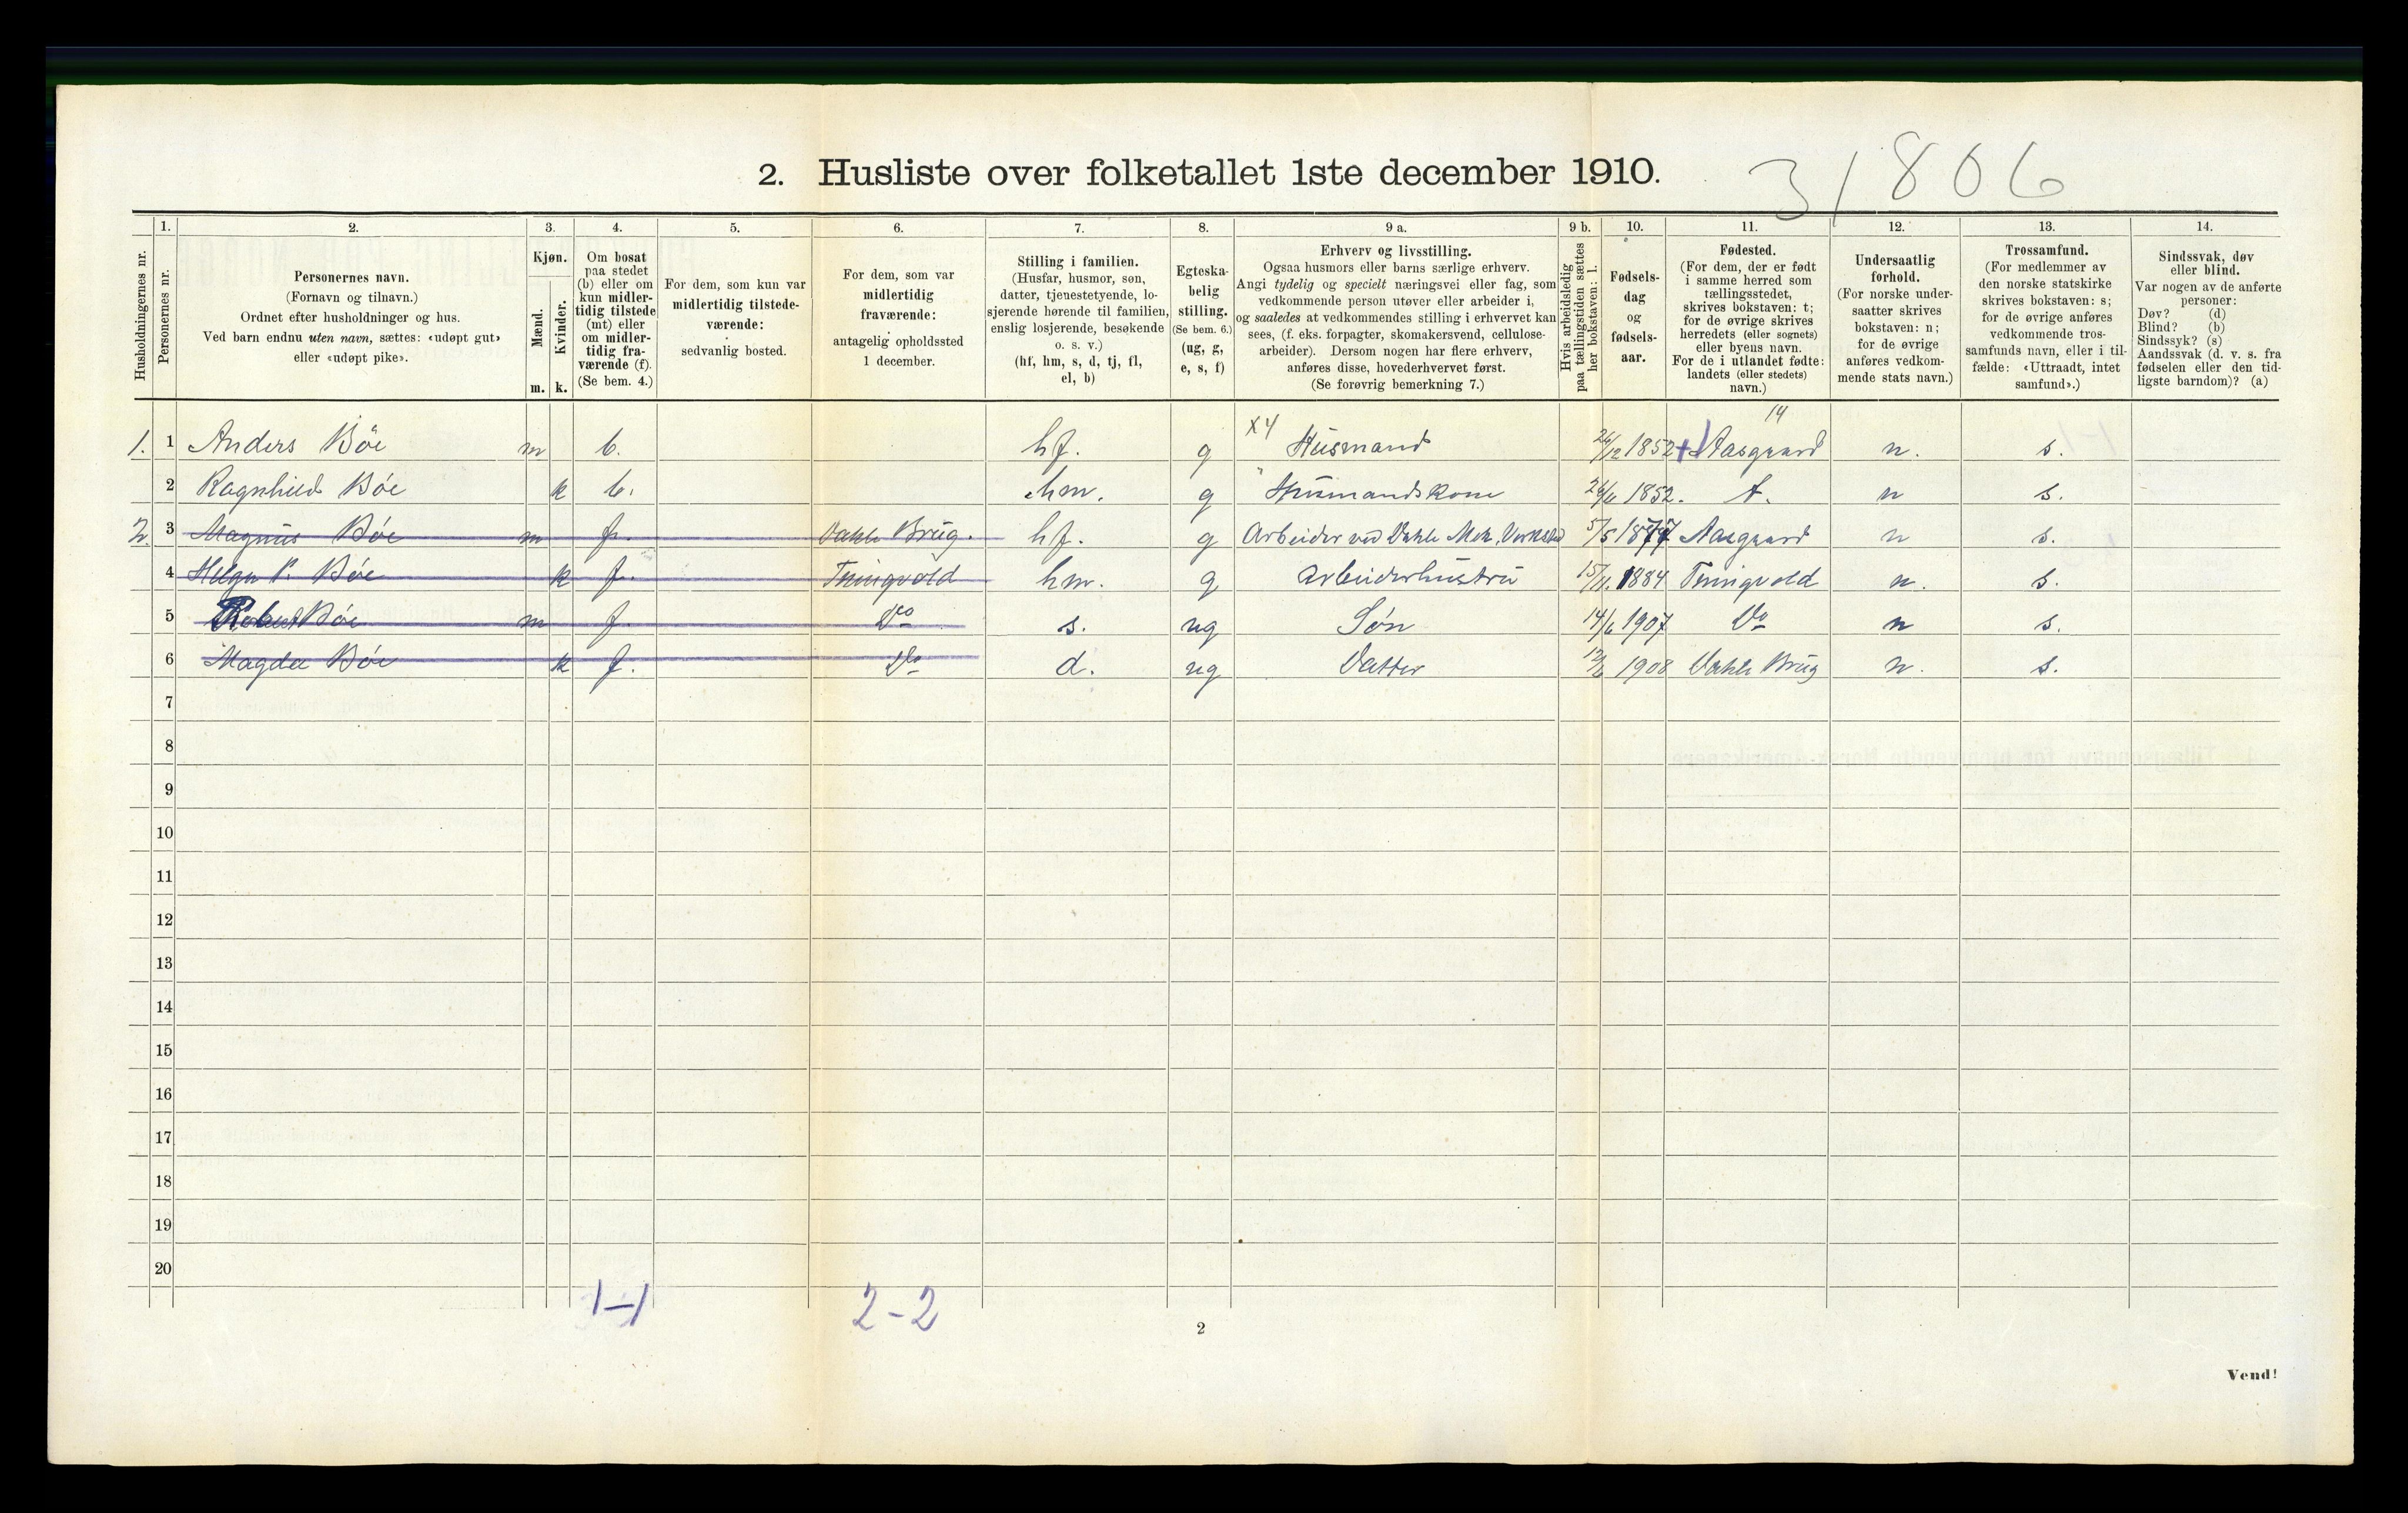 2. Husliste over folketallet 1ste december 1910.
31806
Husholdningernes nr.
1. Personernes nr.
2. Personernes navn.
(Fornavn og tilnavn.)
Ordnet efter husholdninger og hus.
Ved barn endnu uten navn, sættes: «udøpt gut»
eller «udøpt pike».
3. Kjøn.
Mænd. m.
Kvinder. k.
4. Om bosat
paa stedet
(b) eller om
kun midler-
tidig tilstede
(mt) eller
om midler-
tidig fra-
værende (f).
(Se bem. 4.)
5. For dem, som kun var
midlertidig tilstede-
værende:
sedvanlig bosted.
6. For dem, som var
midlertidig
fraværende:
antagelig opholdssted
1 december.
7. Stilling i familien.
(Husfar, husmor, søn,
datter, tjenestetyende, lo-
sjerende hørende til familien,
enslig losjerende, besøkende
o. s. v.)
(hf, hm, s, d, tj, fl,
el, b)
8. Egteska-
belig
stilling.
(Se bem. 6.)
(ug, g,
e, s, f)
9 a. Erhverv og livsstilling.
Ogsaa husmors eller barns særlige erhverv.
Angi tydelig og specielt næringsvei eller fag, som
vedkommende person utøver eller arbeider i,
og saaledes at vedkommendes stilling i erhvervet kan
sees, (f. eks. forpagter, skomakersvend, cellulose-
arbeider). Dersom nogen har flere erhverv,
anføres disse, hovederhvervet først.
(Se forøvrig bemerkning 7.)
9 b. Hvis arbeidsledig
paa tællingstiden sættes
her bokstaven: l.
10. Fødsels-
dag
og
fødsels-
aar.
11. Fødested.
(For dem, der er født
i samme herred som
tællingsstedet,
skrives bokstaven: t;
for de øvrige skrives
herredets (eller sognets)
eller byens navn.
For de i utlandet fødte:
landets (eller stedets)
navn.)
12. Undersaatlig
forhold.
(For norske under-
saatter skrives
bokstaven: n;
for de øvrige
anføres vedkom-
mende stats navn.)
13. Trossamfund.
(For medlemmer av
den norske statskirke
skrives bokstaven: s;
for de øvrige anføres
vedkommende tros-
samfunds navn, eller i til-
fælde: «Uttraadt, intet
samfund».)
14. Sindssvak, døv
eller blind.
Var nogen av de anførte
personer:
Døv? (d)
Blind? (b)
Sindssyk? (s)
Aandssvak (d. v. s. fra
fødselen eller den tid-
ligste barndom)? (a)
x4 14
1. 1 Anders Böe m b. hf. g Husmand 26/12 1852 Aasgaard n. s.
2 Ragnhild Bóe k b. hm. g Husmandskone 1852. t. n s.
2. 3 Magnus Bóe m f. Vahle Brug. hf. g Arbeider ved Vahle Mek. Verksted 5/5 Aasgaard n s.
4 Helga P. Bóe k f. Tningvold hm. g Arbeiderhustru 15/11. 1884 Tningvold n. s.
5 Robert Bóe m f. Do s. ug Søn 14/6 1907 Do n s.
6 Magda Bóe k f. Do d. ug Datter 1908 Vahle Brug n. s.
7
8
9
10
11
12
13
14
15
16
17
18
19
20
1-1 2-2
2
Vend!